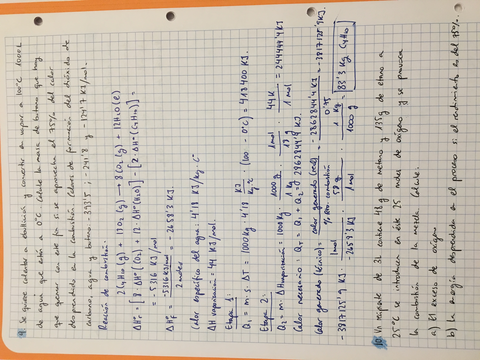 9. Se quiere calentar a ebullición y convertir en vapor a 100°C 1000 L
de agua que están a 0°C. Calcule la masa de butano que hay
que quemar en este fin si se aprovecha el 75% del calor
desprendido en la combustión. Calores de formación del dióxido de
carbono, agua y butano: -393'5 ; -241'8 y -124'7 KJ/mol.
Reacción de combustión:
2 C4H10 (g) + 13 O2 (g) → 8 CO2 (g) + 10 H2O (l)
ΔHr = [8 · ΔHf (CO2) + 10 · ΔHf (H2O)] - [2 · ΔHf (C4H10)] =
= -5316 KJ/mol
ΔHr = -5316 KJ/mol / 2 moles = -2658'3 KJ.
Calor específico del agua: 4'18 KJ/kg · C
ΔH vaporización: 44 KJ/mol.
Etapa 1:
Q1 = m · s · ΔT = 1000 kg · 4'18 KJ/kg°C · (100 - 0°C) = 418400 KJ.
Etapa 2:
Q2 = m · λ vaporización: 1000 kg · 1000 g/1 kg · 1 mol/18 g · 44 KJ/1 mol = 2444444'4 KJ
Calor necesario: QT = Q1 + Q2 = 2862844'4 KJ.
Calor generado (teórico) = calor generado (real) / % Rto. combustión = -2862844'4 KJ / 0'75 = -3817125'9 KJ.
-3817125'9 KJ · 1 mol / -2658'3 KJ · 58 g / 1 mol · 1 kg / 1000 g = 83'3 kg C4H10
10. Un recipiente de 3L contiene 48g de metano y 135g de etano a
25°C se introducen en éste 35 moles de oxígeno y se provoca
la combustión de la mezcla. Calcule:
a) El exceso de oxígeno
b) La energía desprendida en el proceso si el rendimiento es del 75%.